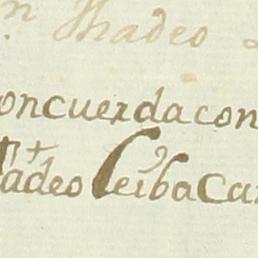 n Thadeo
oncuerda con
adeo Leiba Ca